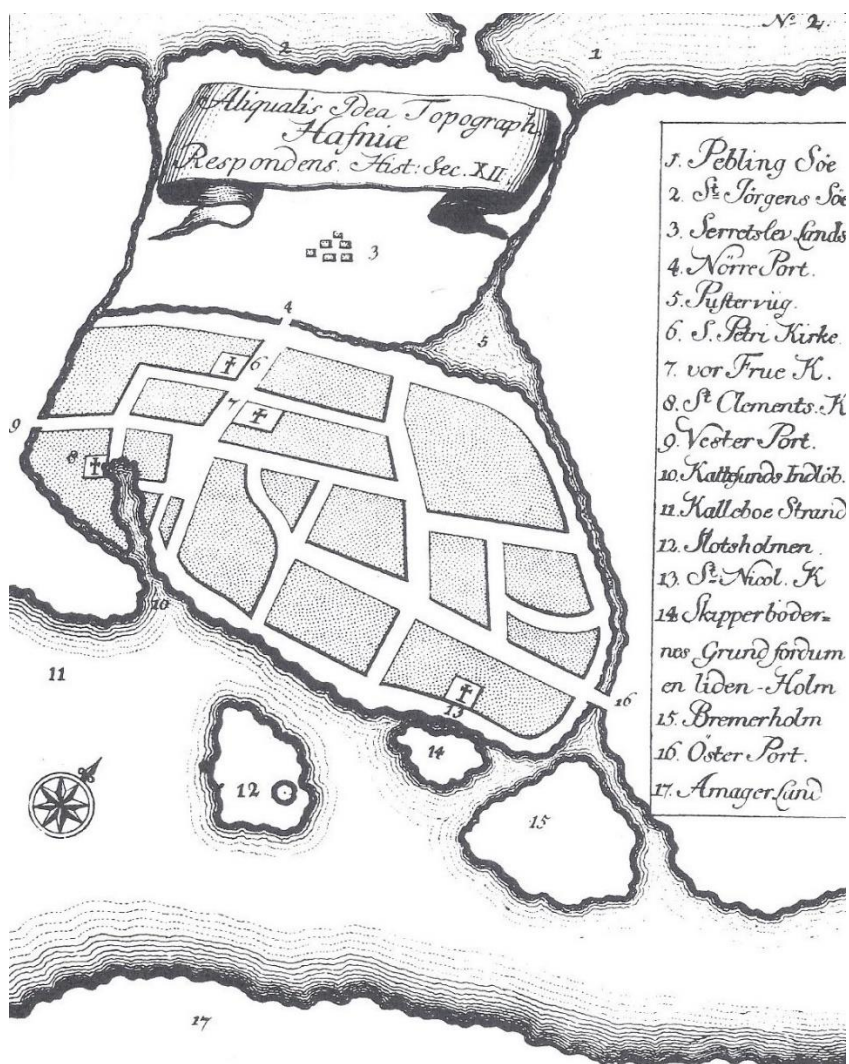 No. 2.
2
1
Aliqualis Idea Topograph
Hafniæ
Respondens. Hist: Sec. XII
3
4
5
6
7
8
9
10
11
12
13
14
15
16
17
1. Pebling Söe
2. St. Jörgens Söe
3. Serretslev Lands
4. Nörre Port.
5. Pustervüg.
6. S. Petri Kirke
7. vor Frue K.
8. St Clements. K
9. Vester Port.
10. Kattesunds Indlöb.
11. Kalleboe Strand
12. Slotsholmen
13. St. Nicol. K
14 Skipperböder=
nes Grund fordum
en liden-Holm
15. Bremerholm
16. Öster Port.
17. Amager Land